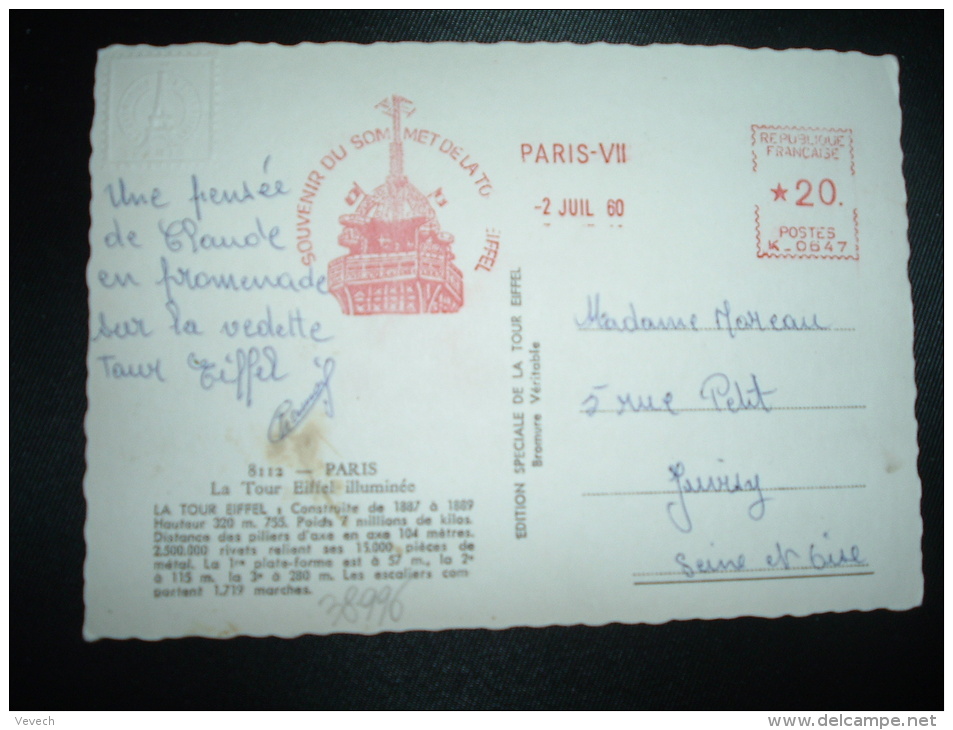 SOUVENIR DU SOMMET DE LA TO EIFFEL
PARIS-VII
-2 JUIL 60
REPUBLIQUE
FRANCAISE
★20.
POSTES
K_0647
Une pensée
de Claude
en promenade
sur la vedette
Tour Eiffel
8112 — PARIS
La Tour Eiffel illuminée
LA TOUR EIFFEL : Construite de 1887 à 1889
Hauteur 320 m. 755. Poids 7 millions de kilos.
Distance des piliers d'axe en axe 104 mètres.
2.500.000 rivets relient ses 15.000 pièces de
métal. La 1re plate-forme est à 57 m., la 2e
à 115 m. la 3e à 280 m. Les escaliers com-
portent 1.719 marches.
38996
EDITION SPECIALE DE LA TOUR EIFFEL
Bromure Véritable
Madame Moreau
5 rue Petit
Juvisy
Seine et Oise
Vevech
www.delcampe.net